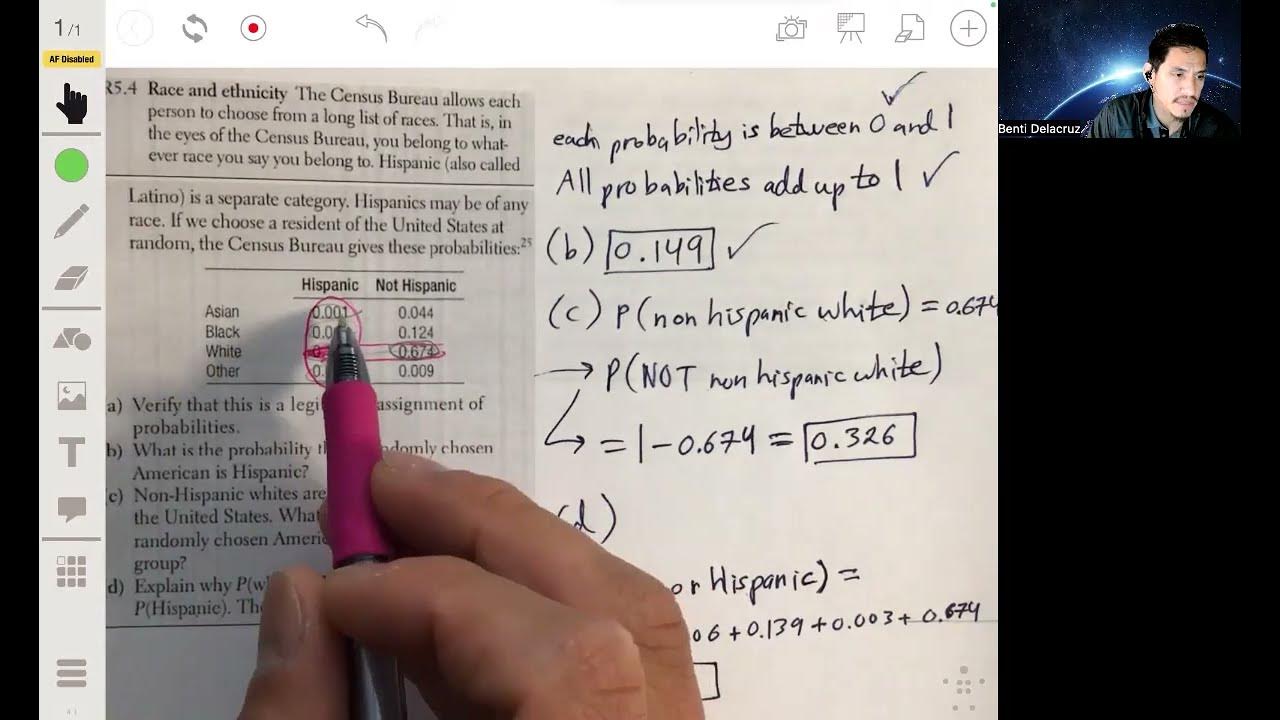 1/1
AF Disabled
R5.4 Race and ethnicity The Census Bureau allows each
person to choose from a long list of races. That is, in
the eyes of the Census Bureau, you belong to what-
ever race you say you belong to. Hispanic (also called
Latino) is a separate category. Hispanics may be of any
race. If we choose a resident of the United States at
random, the Census Bureau gives these probabilities:25
Hispanic Not Hispanic
Asian 0.001 0.044
Black 0.124
White 0.674
Other 0.009
a) Verify that this is a assignment of
probabilities.
b) What is the probability chosen
American is Hispanic?
(c) Non-Hispanic whites are
the United States.
randomly chosen
group?
d) Explain why
P(Hispanic).
each probability is between 0 and 1
All probabilities add up to 1 ✓
(b) 0.149 ✓
(c) P(non hispanic white) = 0.674
→ P(NOT non hispanic white)
= 1 - 0.674 = 0.326
(d)
or Hispanic) =
06 + 0.139 + 0.003 + 0.674
Benti Delacruz